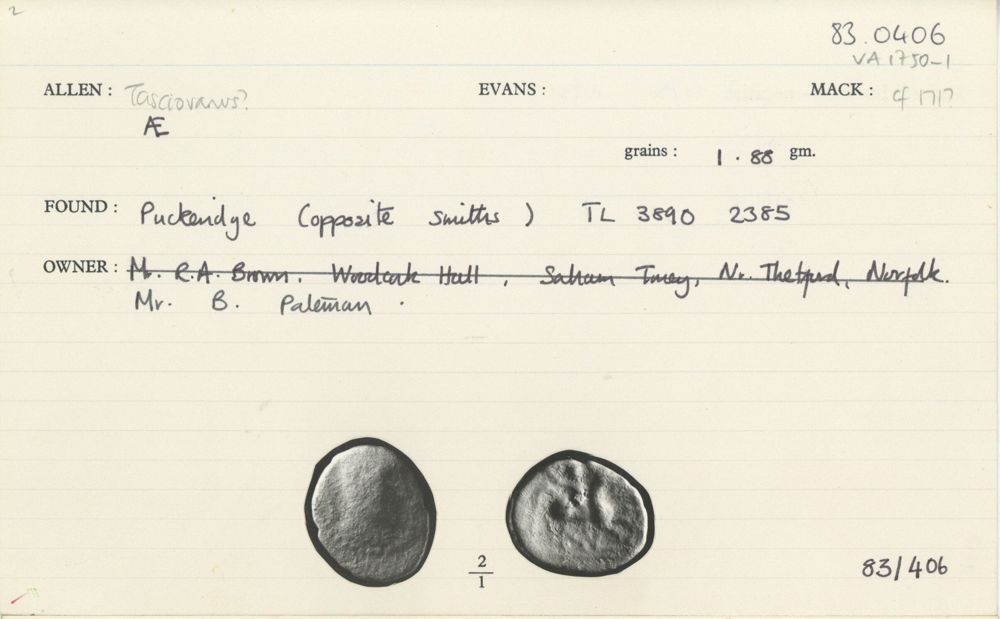 2
83.0406
VA 1750-1
ALLEN : Tasciovanus? EVANS : MACK : cf 171?
Æ
grains : 1.88 gm.
FOUND : Puckeridge (opposite smiths) TL 3890 2385
OWNER : Mr. R.A. Brown. Woodcock Hall, Saham Toney, Nr. Thetford, Norfolk.
Mr. B.
2
1
83/406